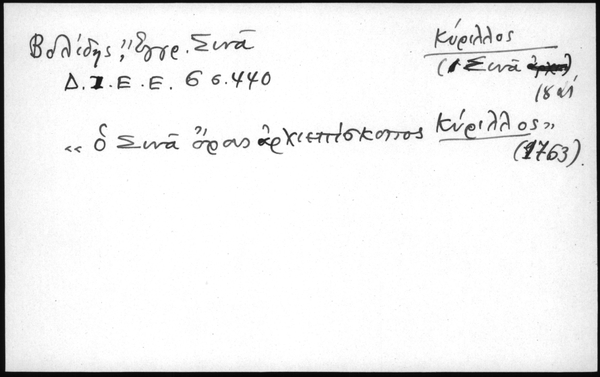 Βολίδης, Ἔγγρ. Σινᾶ
Δ.Ι.Ε.Ε. 6 σ. 440
Κύριλλος
(Σινᾶ
18 αἰ
« ὁ Σινᾶ ὄρους ἀρχιεπίσκοπος Κύριλλος»
(1763).